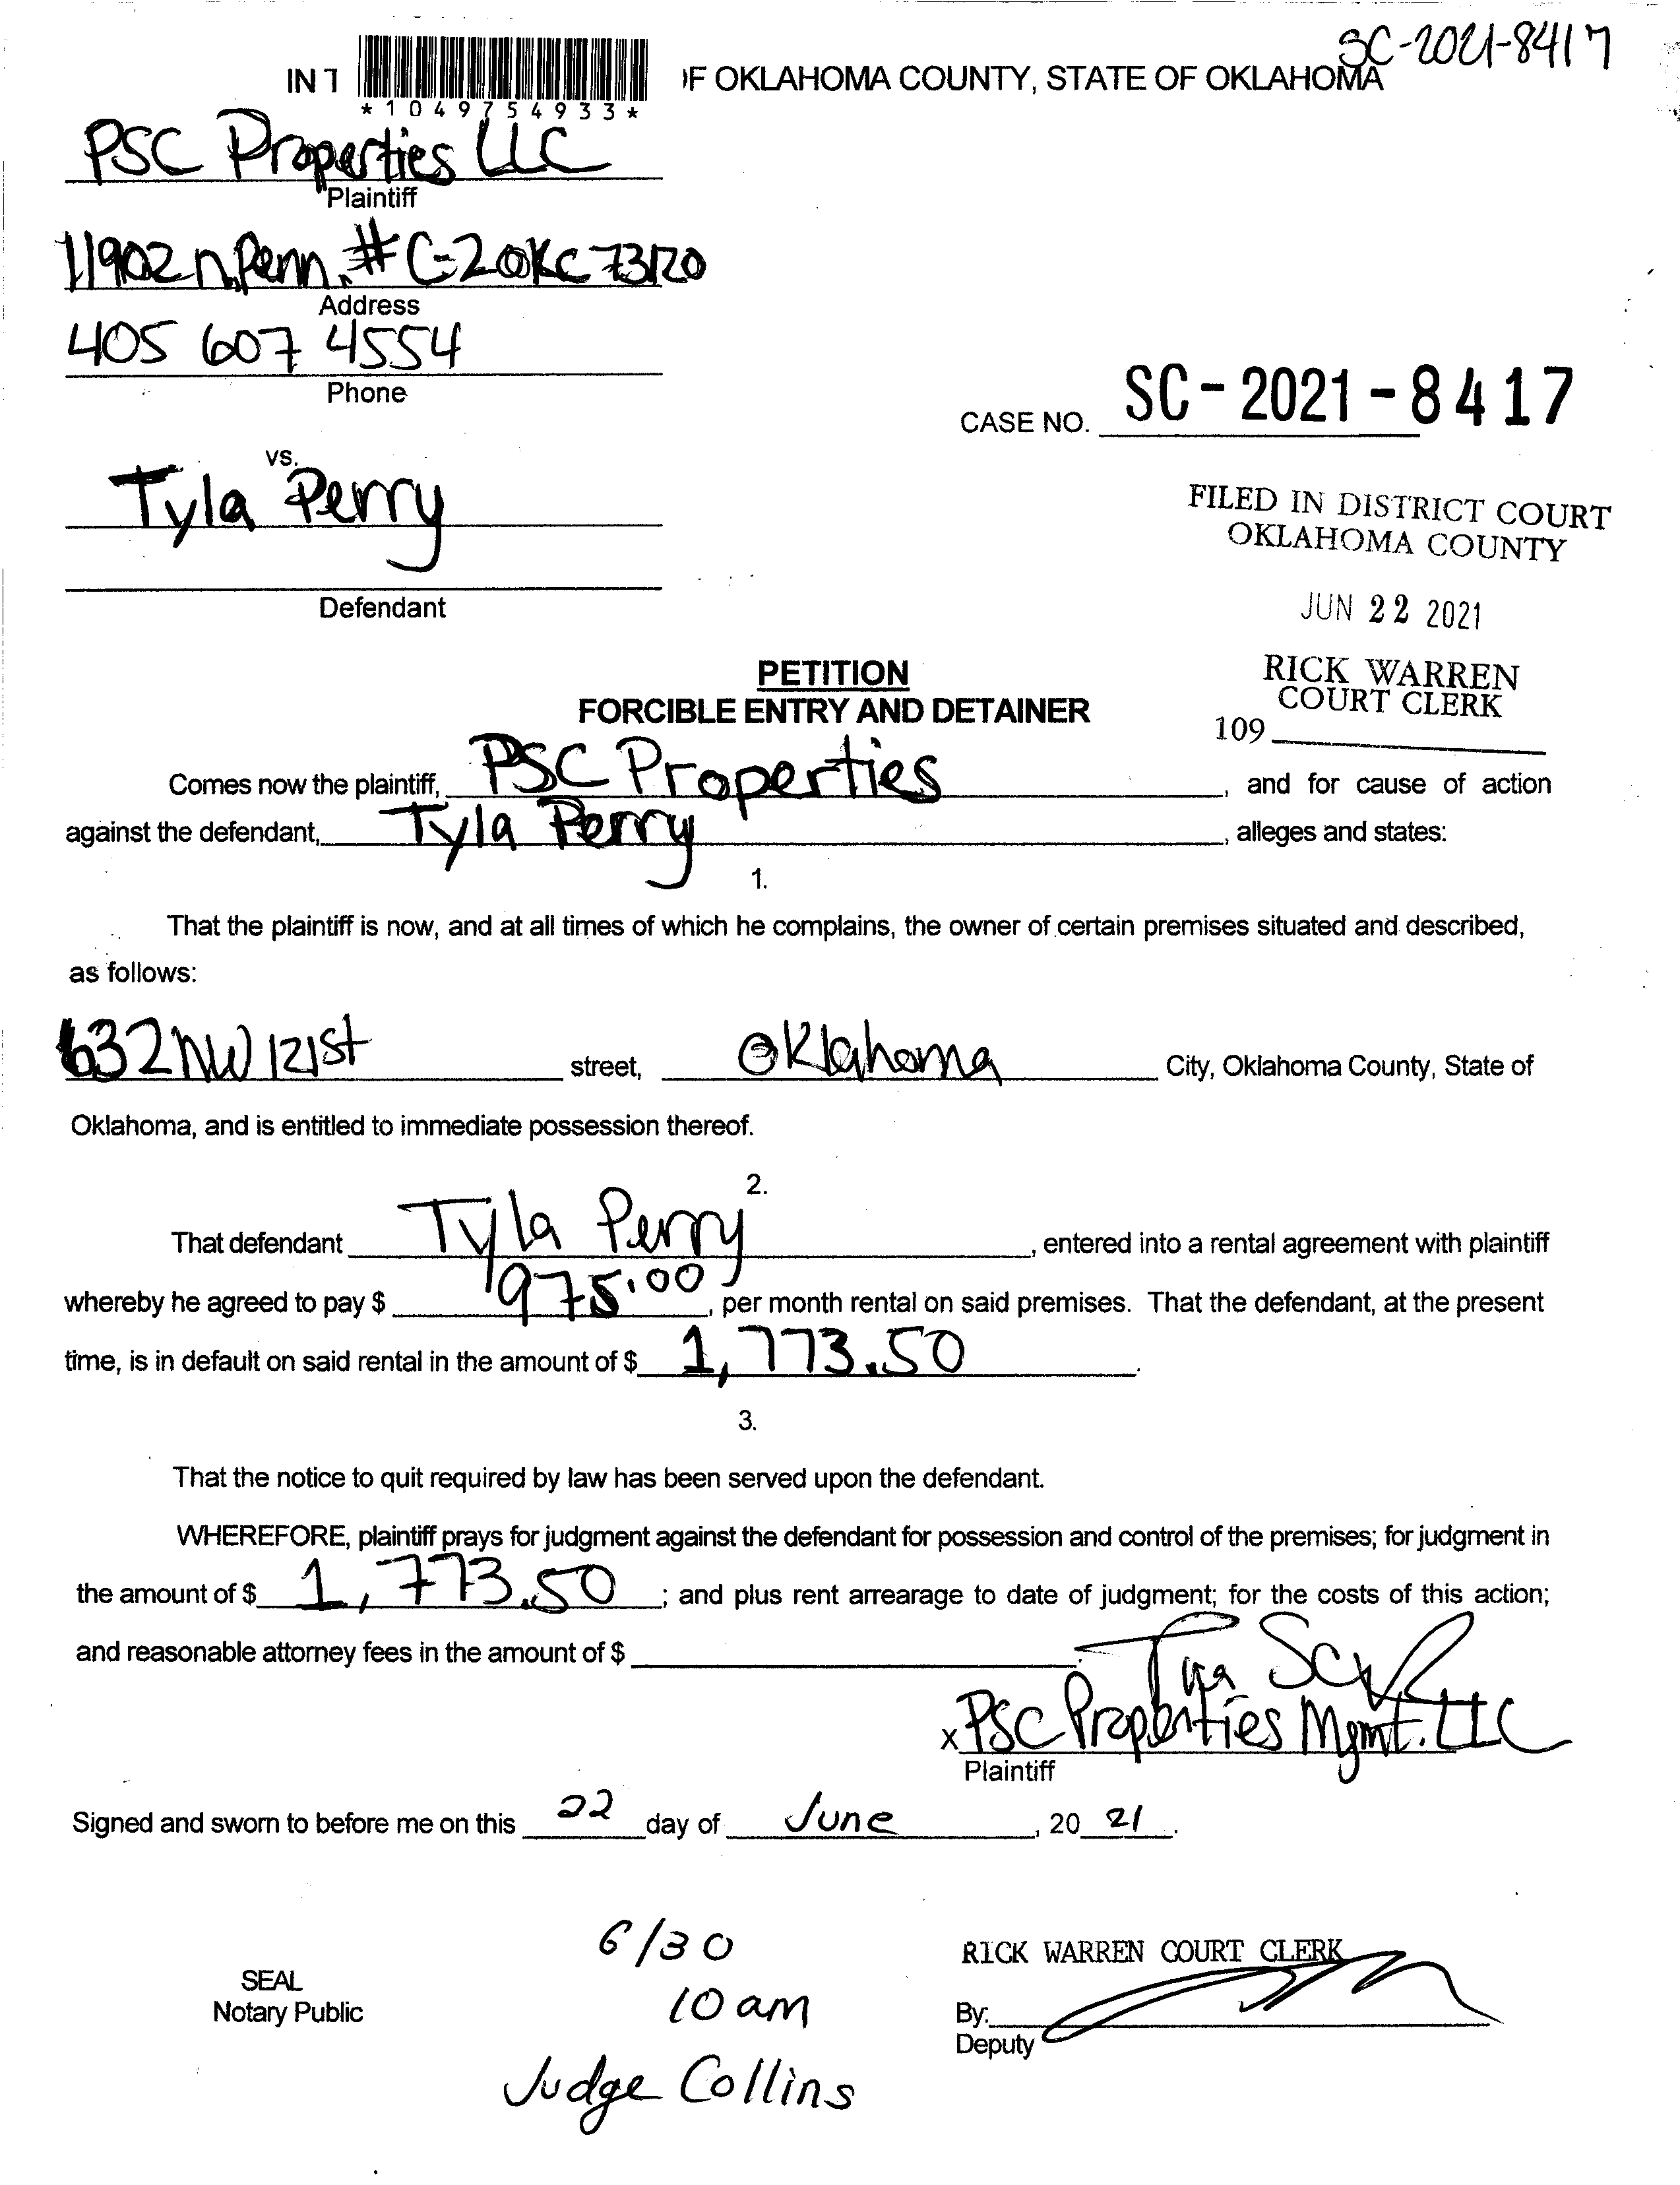 SC-2021-8417
IN T
F OKLAHOMA COUNTY, STATE OF OKLAHOMA
*1049754933*
PSC Properties LLC
Plaintiff
11902 N. Penn. # C-2 OKC 73120
Address
405 607 4554
Phone
CASE NO. SC-2021-8417
vs.
Tyla Perry
Defendant
FILED IN DISTRICT COURT
OKLAHOMA COUNTY
JUN 22 2021
RICK WARREN
COURT CLERK
109
PETITION
FORCIBLE ENTRY AND DETAINER
Comes now the plaintiff, PSC Properties, and for cause of action
against the defendant, Tyla Perry, alleges and states:
1.
That the plaintiff is now, and at all times of which he complains, the owner of certain premises situated and described,
as follows:
632 NW 121st street, Oklahoma City, Oklahoma County, State of
Oklahoma, and is entitled to immediate possession thereof.
2.
That defendant Tyla Perry, entered into a rental agreement with plaintiff
whereby he agreed to pay $ 975.00, per month rental on said premises. That the defendant, at the present
time, is in default on said rental in the amount of $ 1,773.50.
3.
That the notice to quit required by law has been served upon the defendant.
WHEREFORE, plaintiff prays for judgment against the defendant for possession and control of the premises; for judgment in
the amount of $ 1,773.50; and plus rent arrearage to date of judgment; for the costs of this action;
and reasonable attorney fees in the amount of $.
x PSC Properties Mgmt. LLC
Plaintiff
Signed and sworn to before me on this 22 day of June, 20 21.
6/30
10 am
Judge Collins
SEAL
Notary Public
RICK WARREN COURT CLERK
By:
Deputy